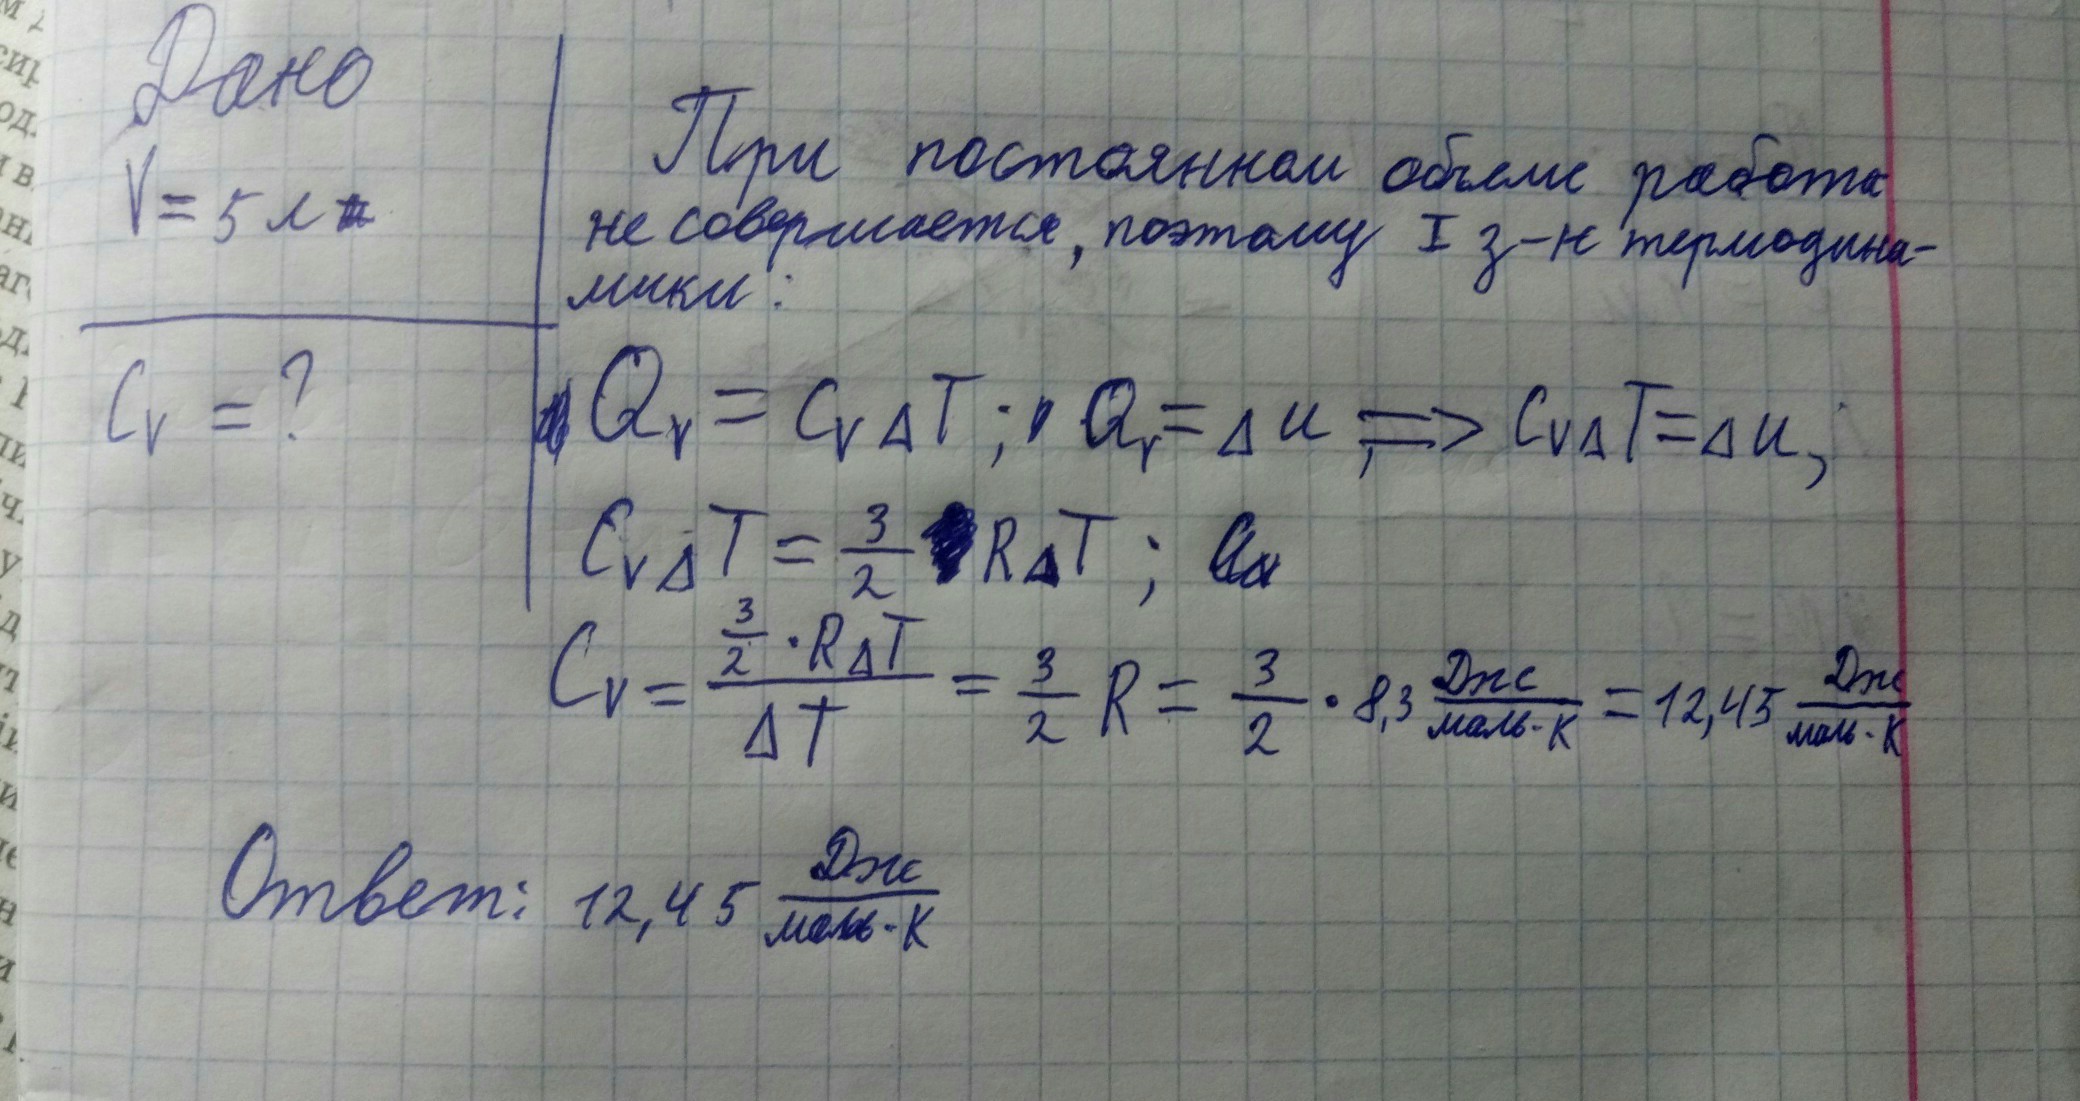 Дано
V = 5 л
C_V = ?
При постоянном объеме работа
не совершается, поэтому I з-н термодина-
мики:
Q_V = C_V ΔT; Q_V = Δu, => C_V ΔT = Δu,
C_V ΔT = 3/2 RΔT;
C_V = (3/2 · RΔT)/ΔT = 3/2 R = 3/2 · 8,3 Дж/моль·К = 12,45 Дж/моль·К
Ответ: 12,45 Дж/моль·К